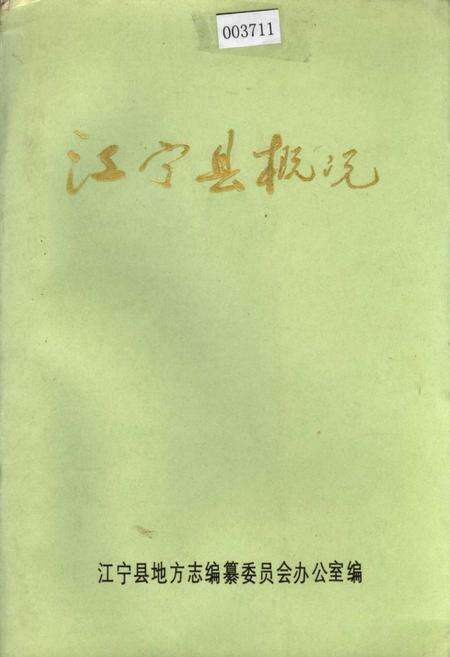 003711
江宁县概况
江宁县地方志编纂委员会办公室编